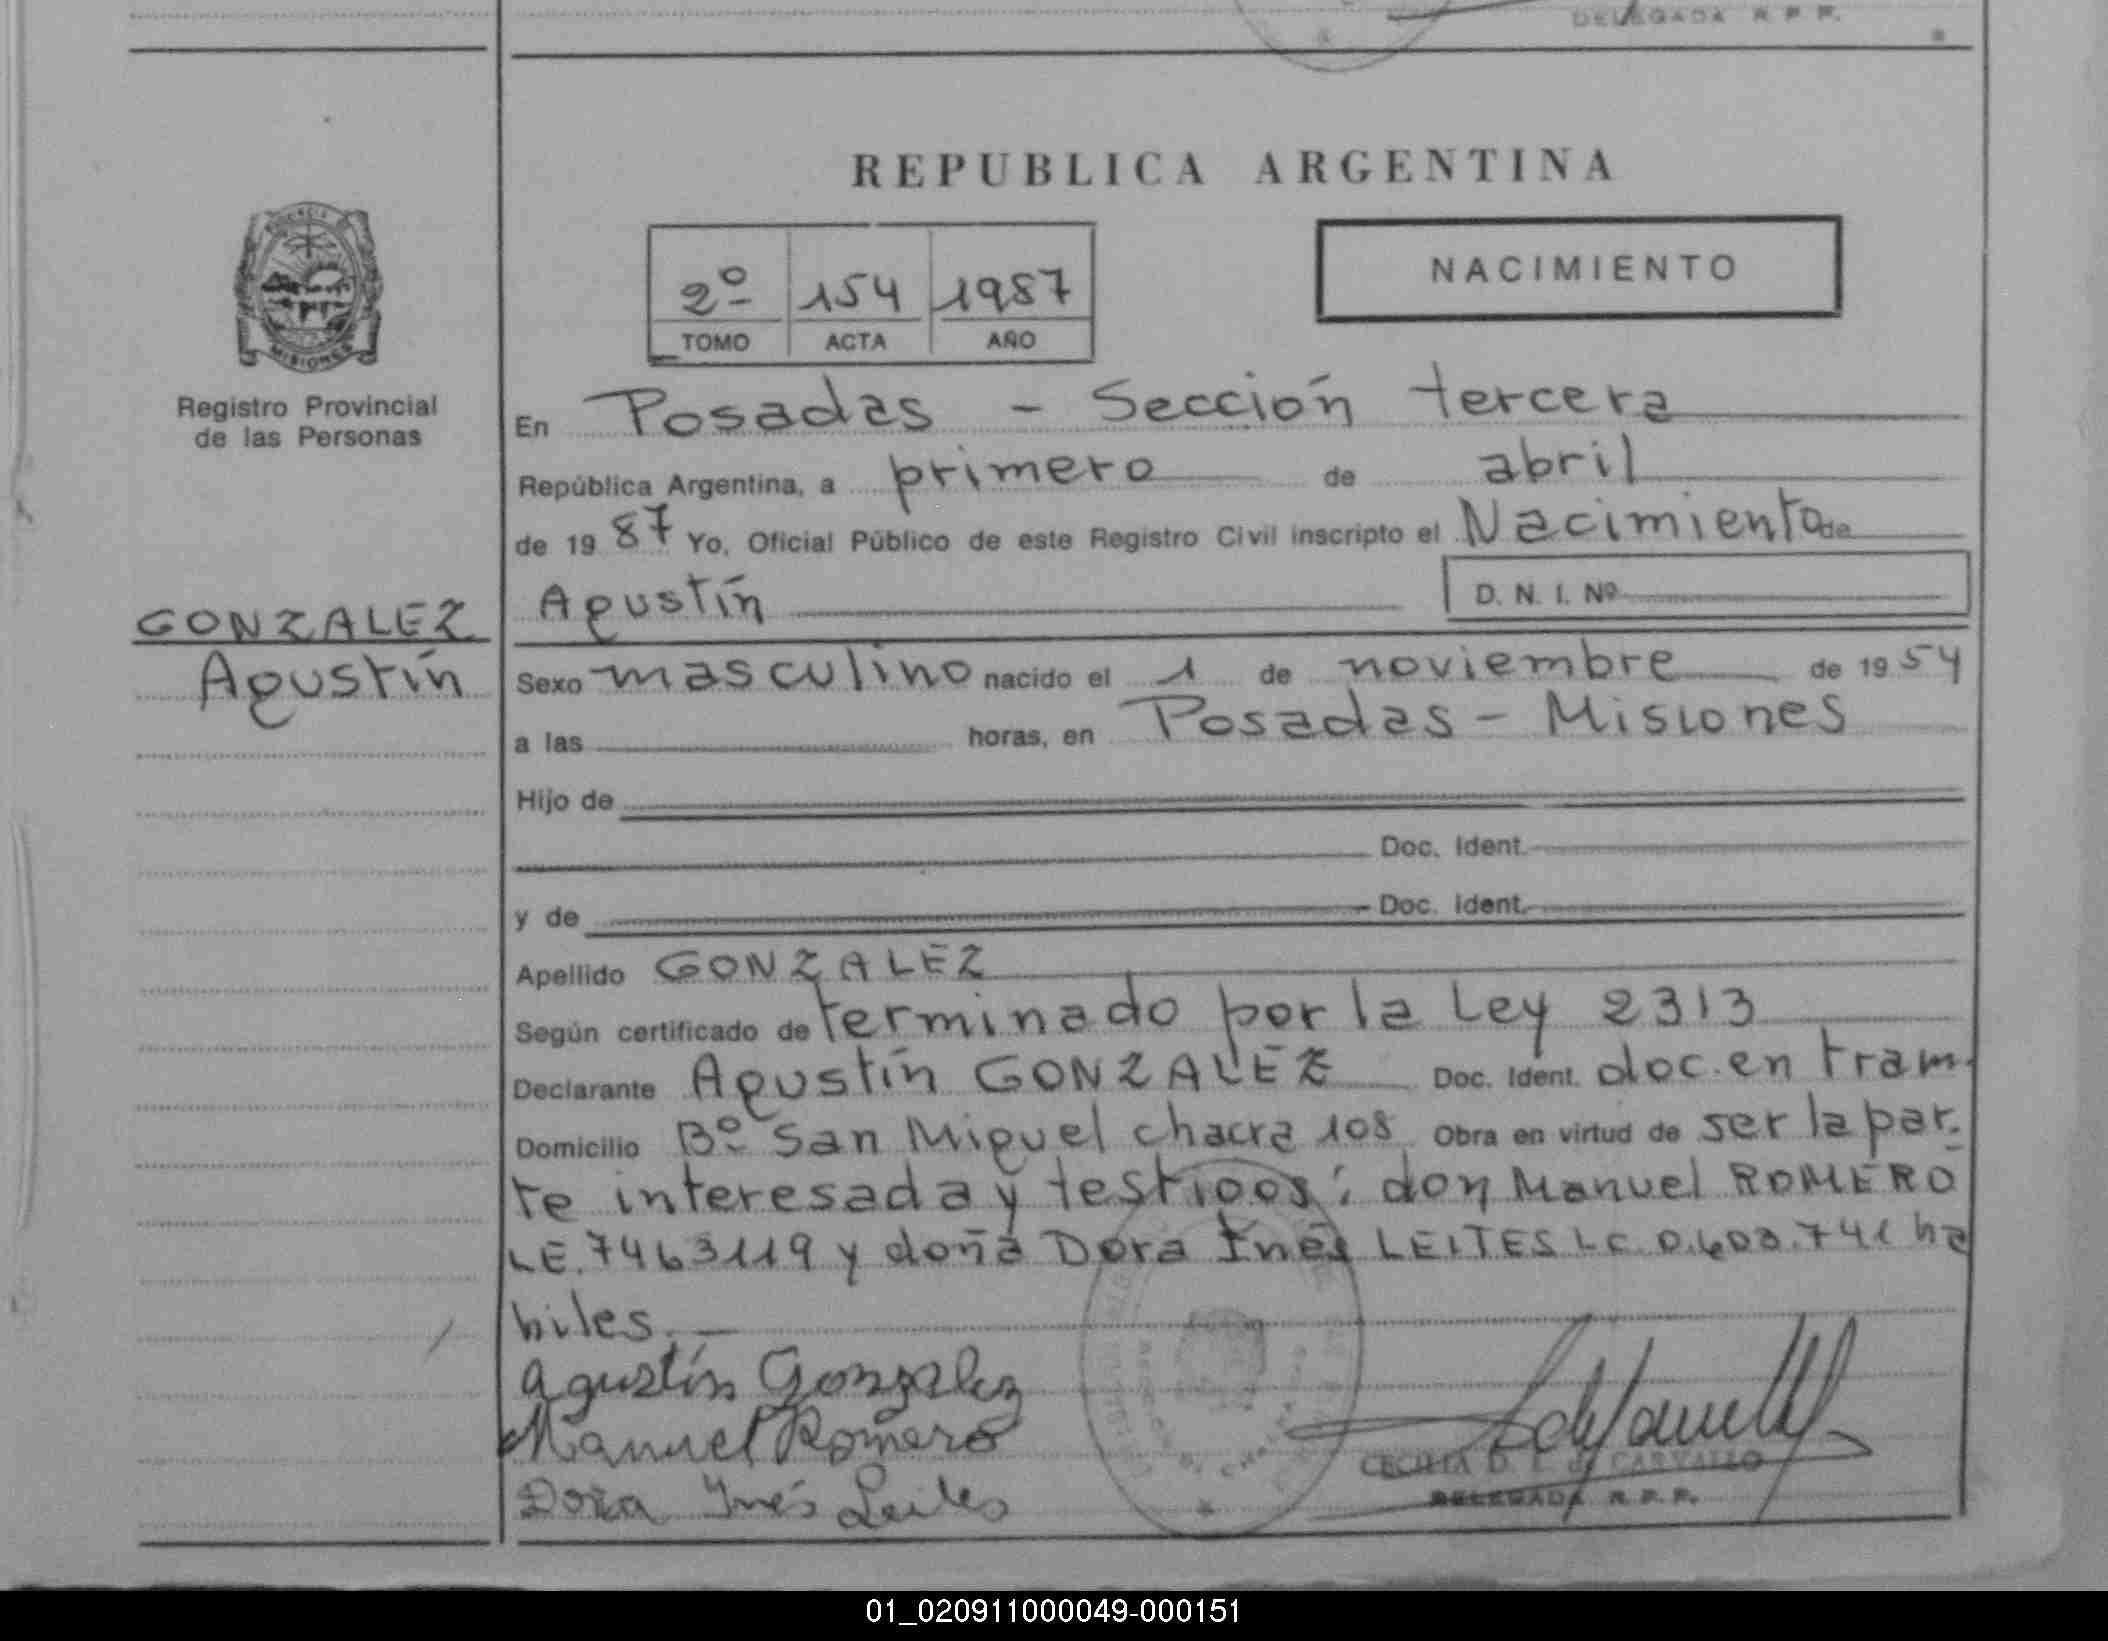 DELEGADA R. P. P.
REPUBLICA ARGENTINA
2º 154 1987
TOMO ACTA AÑO
NACIMIENTO
MISIONES
Registro Provincial
de las Personas
GONZALEZ
Agustín
En Posadas - Sección tercera
República Argentina, a primero de abril
de 1987 Yo, Oficial Público de este Registro Civil inscripto el Nacimiento de
Agustín D. N. I. Nº
Sexo masculino nacido el 1 de noviembre de 1954
a las horas, en Posadas - Misiones
Hijo de
Doc. Ident.
y de Doc. Ident.
Apellido GONZALEZ
Según certificado de terminado por la Ley 2313
Declarante Agustín GONZALEZ Doc. Ident. doc. en tram.
Domicilio Bº San Miguel chacra 108 Obra en virtud de ser la par-
te interesada y testigos: don Manuel ROMERO
LE. 7463119 y doña Dora Inés LEITES LC ha
biles.
Agustín Gonzalez
Manuel Romero
Dora Inés Leites
CECILIA D. L. CARVALLO
DELEGADA R. P. P.
01_020911000049-000151